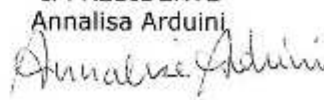 Annalisa Arduini
Annalisa Arduini